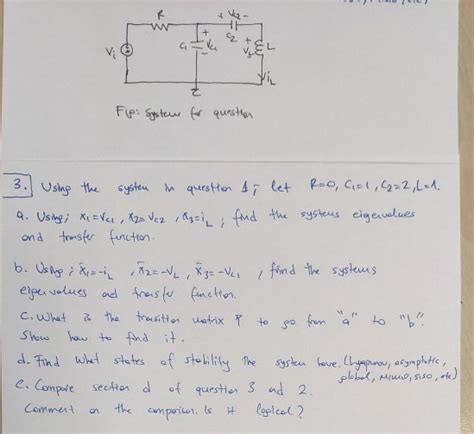 R
+ Vc2 -
C2
Vi
C1
+
Vc1
-
+
V3
-
L
iL
Fig: System for question
3. Using the system in question 1; let R=0, C1=1, C2=2, L=1.
a. Using; x1=Vc1, x2=Vc2, x3=iL; find the systems eigenvalues
and transfer function.
b. Using; x̄1=-iL, x̄2=-VL, x̄3=-Vc1, find the systems
eigenvalues and transfer function.
c. What is the transition matrix P to go from "a" to "b".
Show how to find it.
d. Find what states of stability the system have. (Lyapunov, asymptotic,
global, MIMO, SISO, etc)
e. Compare section d of question 3 and 2.
Comment on the comparison. Is it logical?